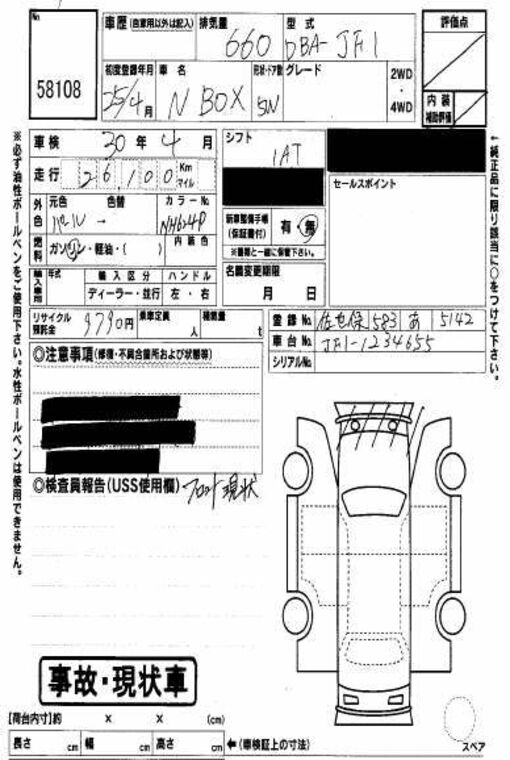 No
58108
車歴 (自家用以外は記入)
排気量 660
型式 DBA-JF1
評価点
初度登録年月 25/4月
車名 N BOX
形状・ドア数 5N
グレード
2WD
・
4WD
内装
補助評価
車検 30年4月
シフト 1AT
走行 26,100 Km マイル
セールスポイント
外色 元色 パール → 色替
カラーNo NH624P
新車整備手帳
(保証書付)
有・無
※書類と一緒に保管下さい。
燃料 ガソリン・軽油・( )
内装色
輸入車用 年式
輸入区分 ディーラー・並行
ハンドル 左・右
名義変更期限
月 日
リサイクル
預託金 9790円
乗車定員 人
積載量 t
登録No 佐世保 583 あ 5142
車台No JF1-1234655
シリアルNo
◎注意事項(修復・不具合箇所および状態等)
◎検査員報告(USS使用欄) フロント現状
事故・現状車
【荷台内寸】約 × × (cm)
長さ cm 幅 cm 高さ cm ←(車検証上の寸法)
スペア
※必ず油性ボールペンをご使用下さい。水性ボールペンは使用できません。
←純正品に限り該当に○をつけて下さい。